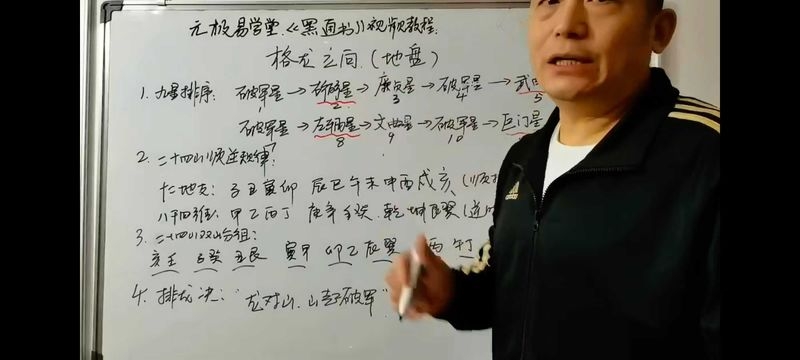 元极易学堂.《黑通书》视频教程.
格龙之向.(地盘)
1. 九星排序: 破军星→右弼星→廉贞星→破军星→武
1 2 3 4 5
破军星→左辅星→文曲星→破军星→巨门星
8 9 10
2. 二十四山顺逆规律:
十二地支: 子丑寅卯 辰巳午未申酉戌亥 (顺
八干四维: 甲乙丙丁 庚辛壬癸.乾坤艮巽 (逆
3. 二十四山双山分组:
亥壬 子癸 丑艮 寅甲 卯乙 辰巽 丙 午丁
4. 排龙决: "龙对山.山起破军"
adidas